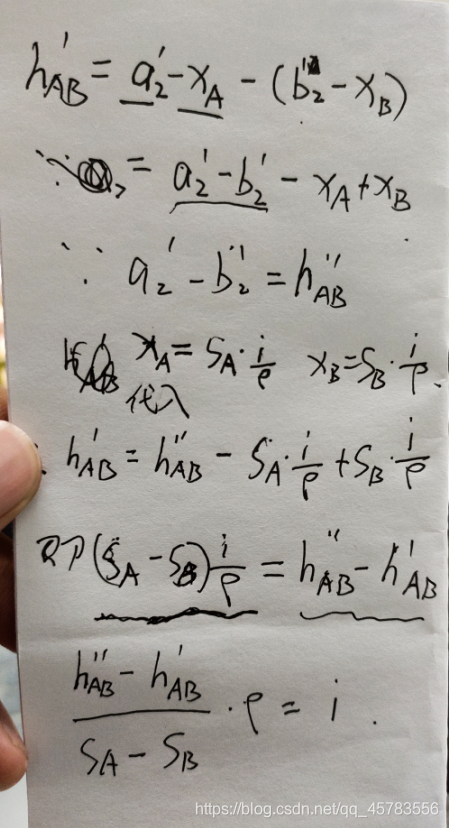 h'AB = a'2 - xA - (b'2 - xB)
= a'2 - b'2 - xA + xB
∵ a'2 - b'2 = h''AB
xA = SA · i/ρ xB = SB · i/ρ
代入
h'AB = h''AB - SA · i/ρ + SB · i/ρ
即 (SA - SB) i/ρ = h''AB - h'AB
(h''AB - h'AB)/(SA - SB) · ρ = i .
https://blog.csdn.net/qq_45783556